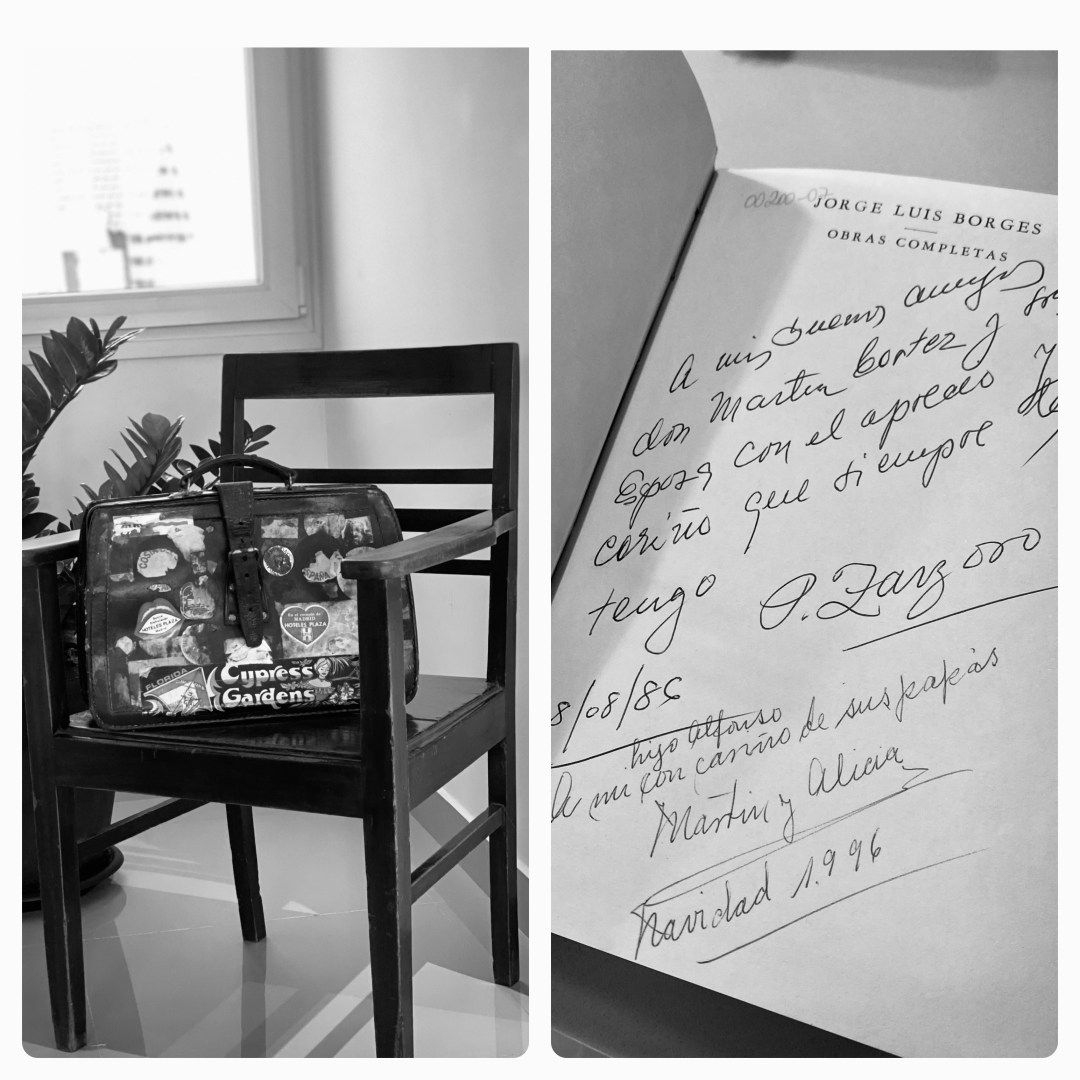 HOTELES PLAZA
En el corazón de
MADRID
HOTELES PLAZA
FLORIDA
Cypress
Gardens
00200-07
JORGE LUIS BORGES
OBRAS COMPLETAS
A mis buenos amigos
don Martin Cortez y
Esposa con el aprecio y
cariño que siempre
tengo P. Zarzoso
8/08/86
A mi hijo Alfonso
con cariño de sus papás
Martin y Alicia
Navidad 1.996